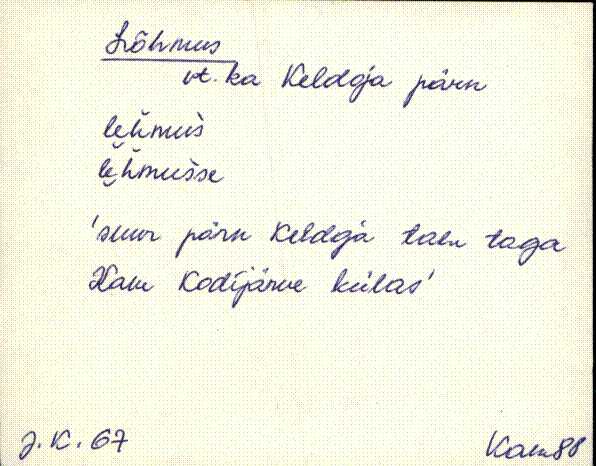 Lõhmus
vt. ka Keldoja pärn
lehmus
lehmusse
'suur pärn Keldoja talu taga
Kam Kodijärve külas'
J.K. 67
Kam 88